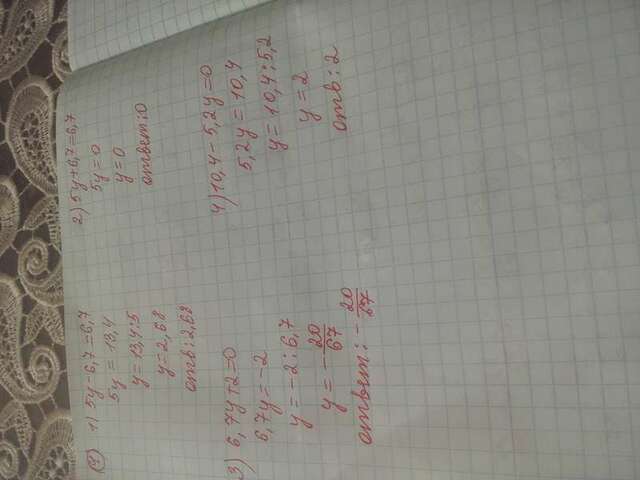 1) 5y-6,7=6,7
5y = 13,4
y=13,4:5
y=2,68
отв:2,68
2) 5y+6,7=6,7
5y=0
y=0
ответ:0
3) 6,7y+2=0
6,7y=-2
y=-2:6,7
y=-20/67
ответ:-20/67
4) 10,4-5,2y=0
5,2y=10,4
y=10,4:5,2
y=2
отв:2